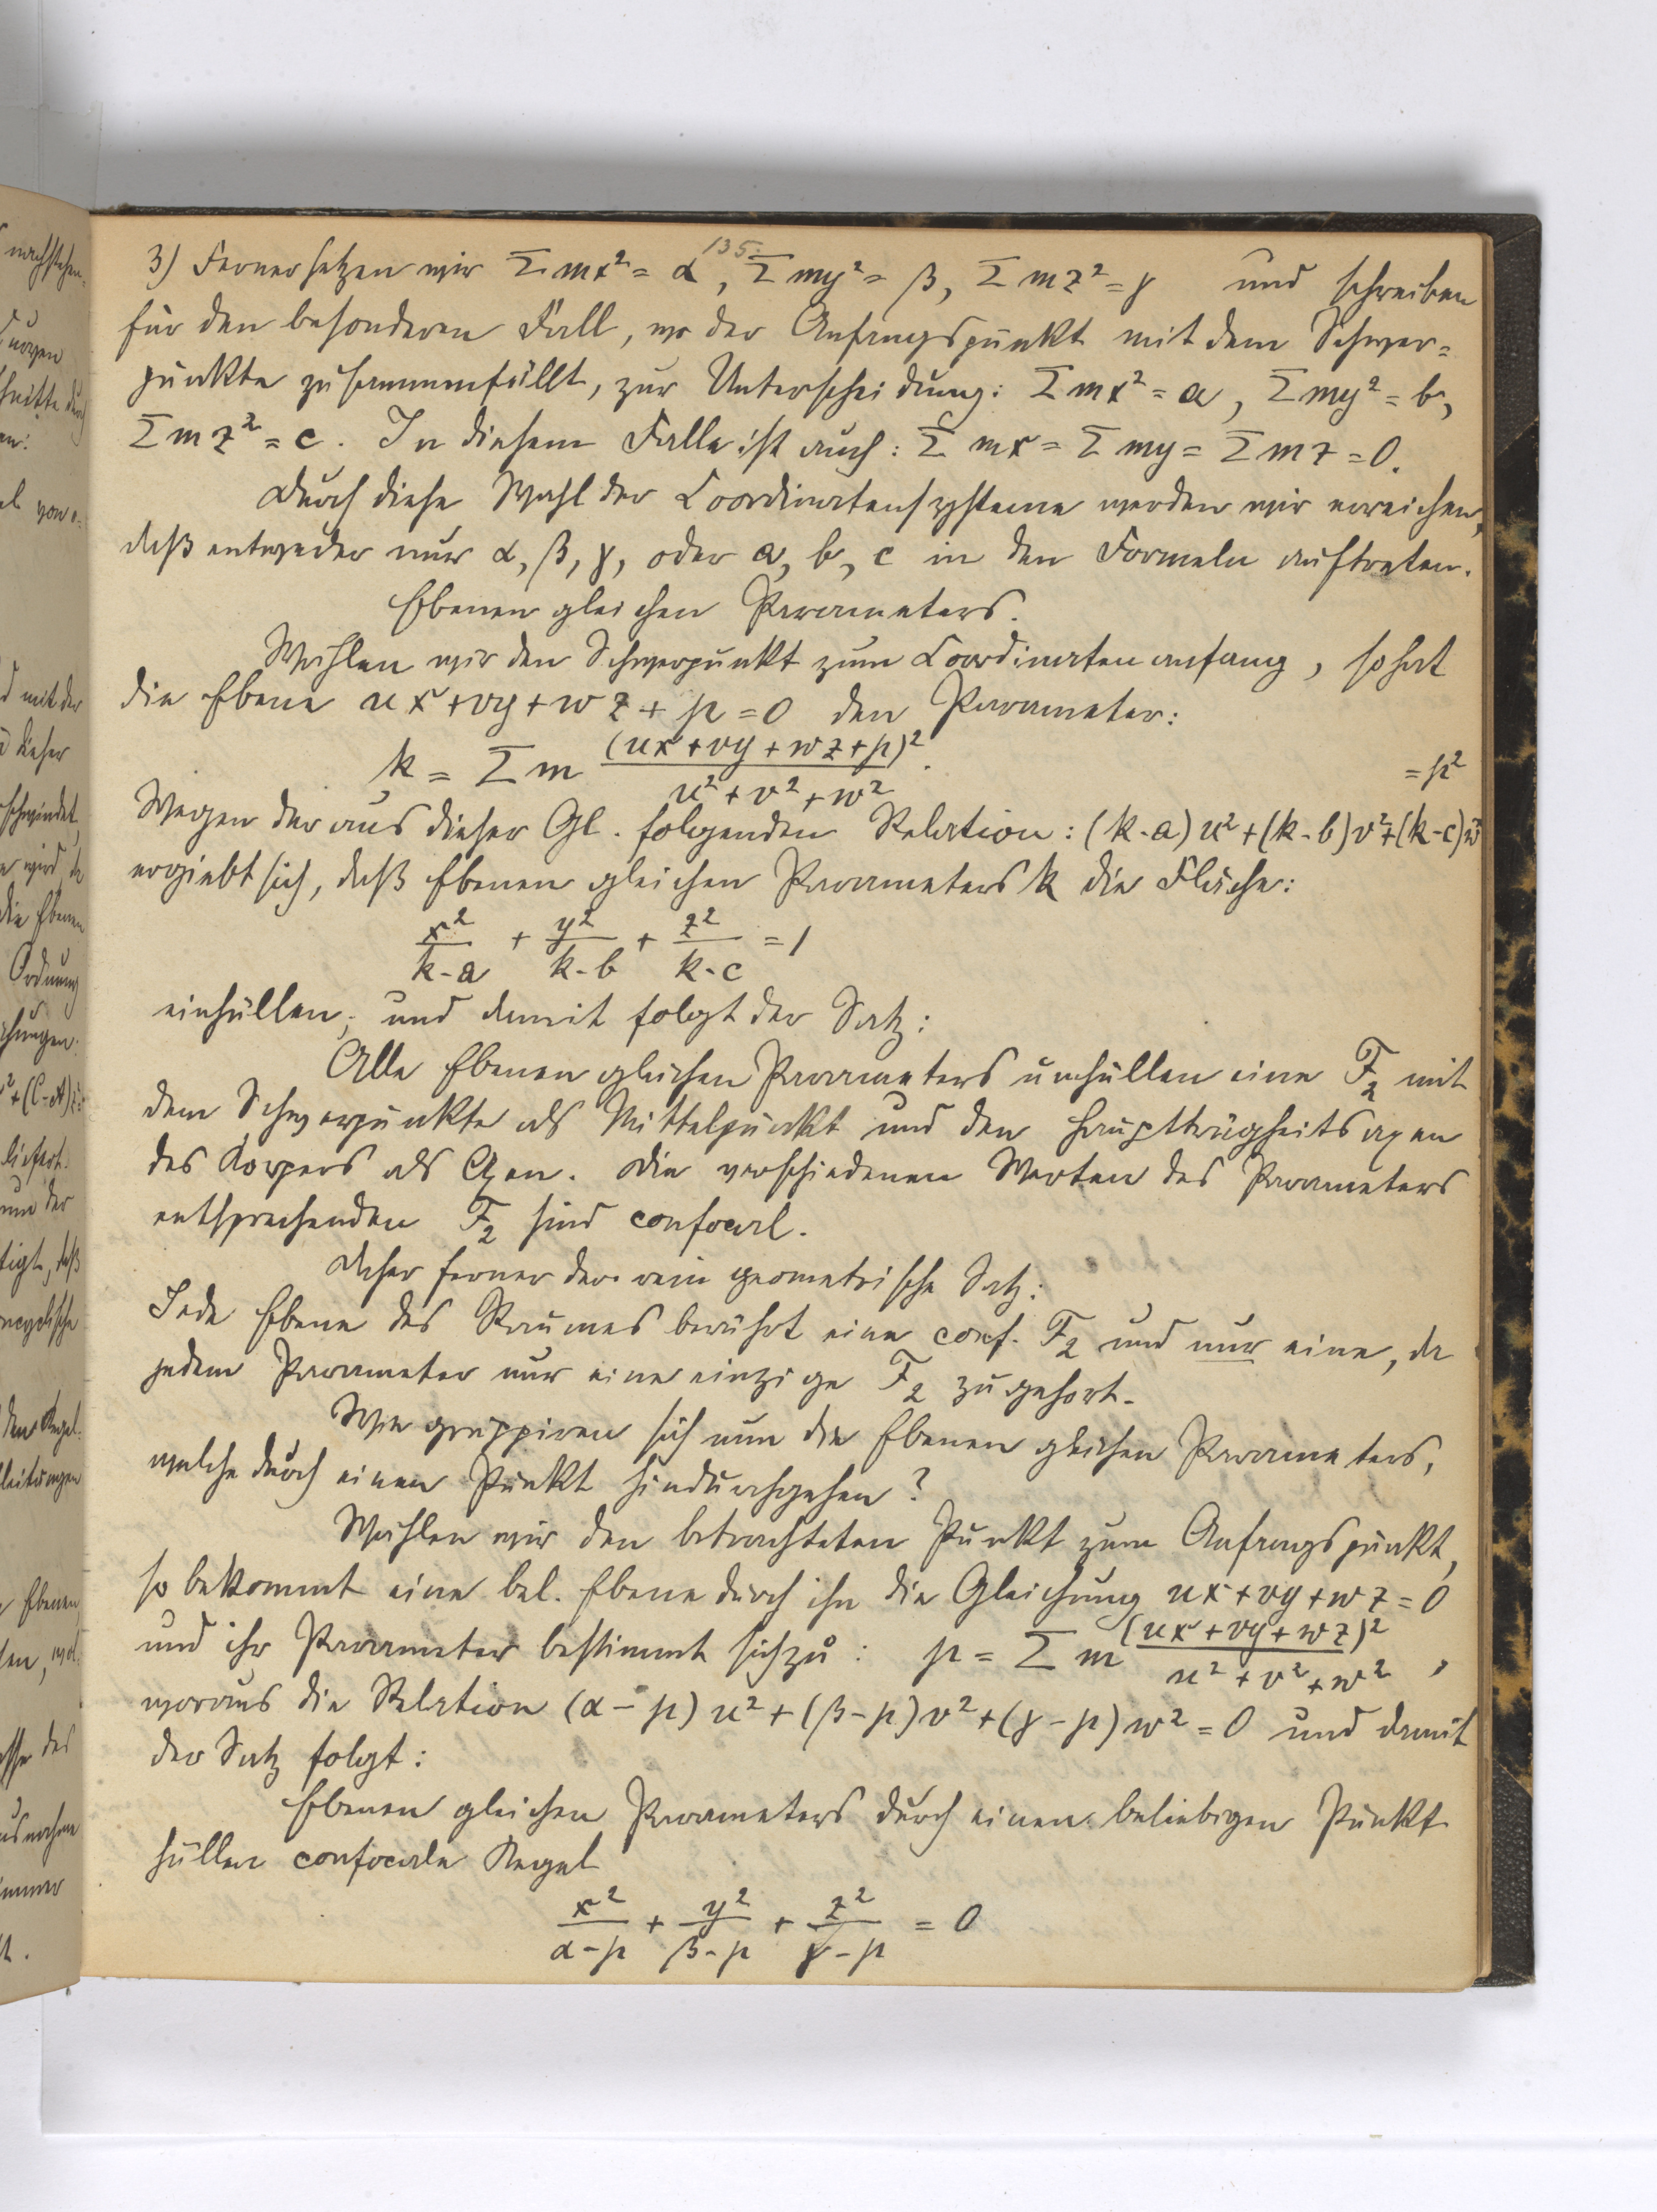 135.
3) Ferner setzen wir Σmx² = α, Σmy² = β, Σmz² = γ und schreiben
für den besonderen Fall, wo der Anfangspunkt mit dem Schwer=
punkte zusammenfällt, zur Unterscheidung: Σmx² = a, Σmy² = b,
Σmz² = c. In diesem Falle ist auch: Σmx = Σmy = Σmz = 0.
Durch diese Wahl der Coordinatensysteme werden wir erreichen,
daß entweder nur α, β, γ, oder a, b, c in den Formeln auftreten.
Ebenen gleichen Parameters.
Wählen wir den Schwerpunkt zum Coordinatenanfang, so hat
die Ebene ux + vy + wz + p = 0 den Parameter:
k = Σm (ux + vy + wz + p)² / (u² + v² + w²).
Wegen der aus dieser Gl. folgenden Relation: (k-a)u² + (k-b)v² + (k-c)w² = p²
ergiebt sich, daß Ebenen gleichen Parameters k die Fläche:
x²/(k-a) + y²/(k-b) + z²/(k-c) = 1
einhüllen, und damit folgt der Satz:
Alle Ebenen gleichen Parameters umhüllen eine F₂ mit
dem Schwerpunkte als Mittelpunkt und den Hauptträgheitsaxen
des Körpers als Axen. Die verschiedenen Werten des Parameters
entsprechenden F₂ sind confocal.
Daher ferner der rein geometrische Satz:
Jede Ebene des Raumes berührt eine conf. F₂ und nur eine, da
jedem Parameter nur eine einzige F₂ zugehört.
Wie gruppiren sich nun die Ebenen gleichen Parameters,
welche durch einen Punkt hindurchgehen?
Wählen wir den betrachteten Punkt zum Anfangspunkt,
so bekommt eine bel. Ebene durch ihn die Gleichung ux + vy + wz = 0
und ihr Parameter bestimmt sich zu: p = Σm (ux + vy + wz)² / (u² + v² + w²),
woraus die Relation (α - p)u² + (β - p)v² + (γ - p)w² = 0 und damit
der Satz folgt:
Ebenen gleichen Parameters durch einen beliebigen Punkt
hüllen confocale Kegel
x²/(α-p) + y²/(β-p) + z²/(γ-p) = 0